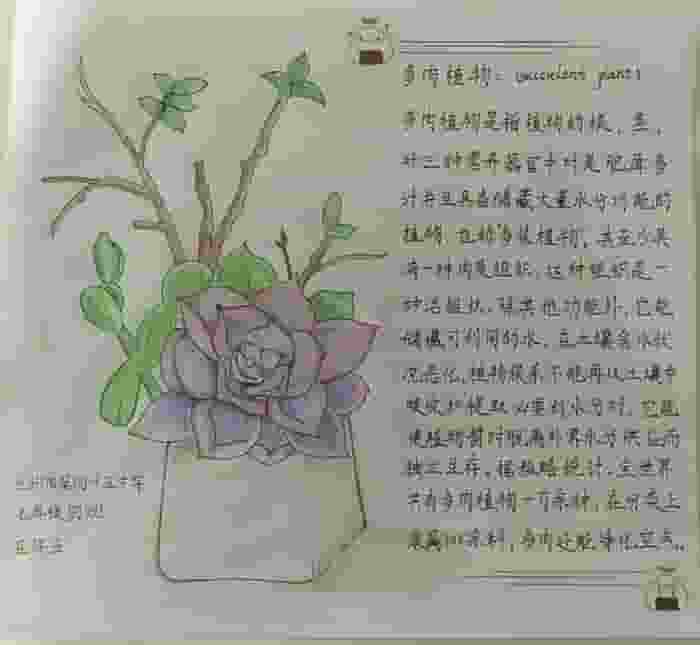 多肉植物: succulent plants
多肉植物是指植物的根、茎、
叶三种营养器官中叶是肥厚多
汁并且具备储藏大量水分功能的
植物.也称多浆植物,其至少具
有一种肉质组织,这种组织是一
种活组织,除其他功能外,它能
储藏可利用的水,在土壤含水状
况恶化,植物根系不能再从土壤中
吸收和提取必要的水分时,它能
使植物暂时脱离外界水分供应而
独立生存,据粗略统计,全世界
共有多肉植物一万余种,在分类上
隶属100余科,多肉还能净化空气.